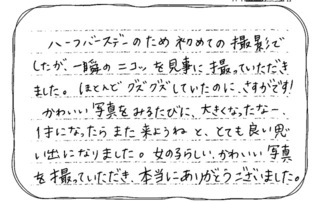 ハーフバースデーのため 初めての撮影で
したが、一瞬のニコッを見事に撮っていただき
ました。ほとんどグズグズしていたのに、さすがです!
かわいい写真をみるたびに、大きくなったなー、
1才になったらまた来ようねと、とても良い思
い出になりました。女の子らしい、かわいい写真
を撮っていただき、本当にありがとうございました。